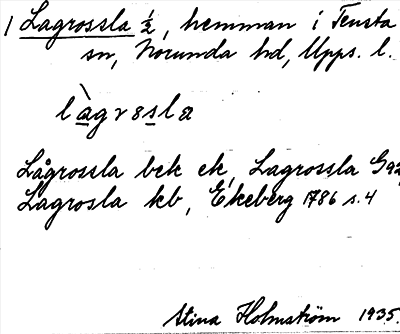 1 Lagrossla ½, hemman i Tensta
sn, Norunda hd, Upps. l.
Lågrossla bek ek, Lagrossla G92
Lagrosla kb, Ekeberg 1786 s. 4
Stina Holmström 1935.